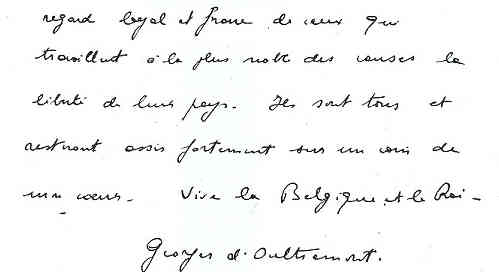 regard loyal et franc de ceux qui
travaillent à la plus noble des causes la
liberté de leur pays. Ils sont tous et
resteront assis fortement sur un coin de
mon cœur. Vive la Belgique et le Roi -
Georges d'Oultremont.